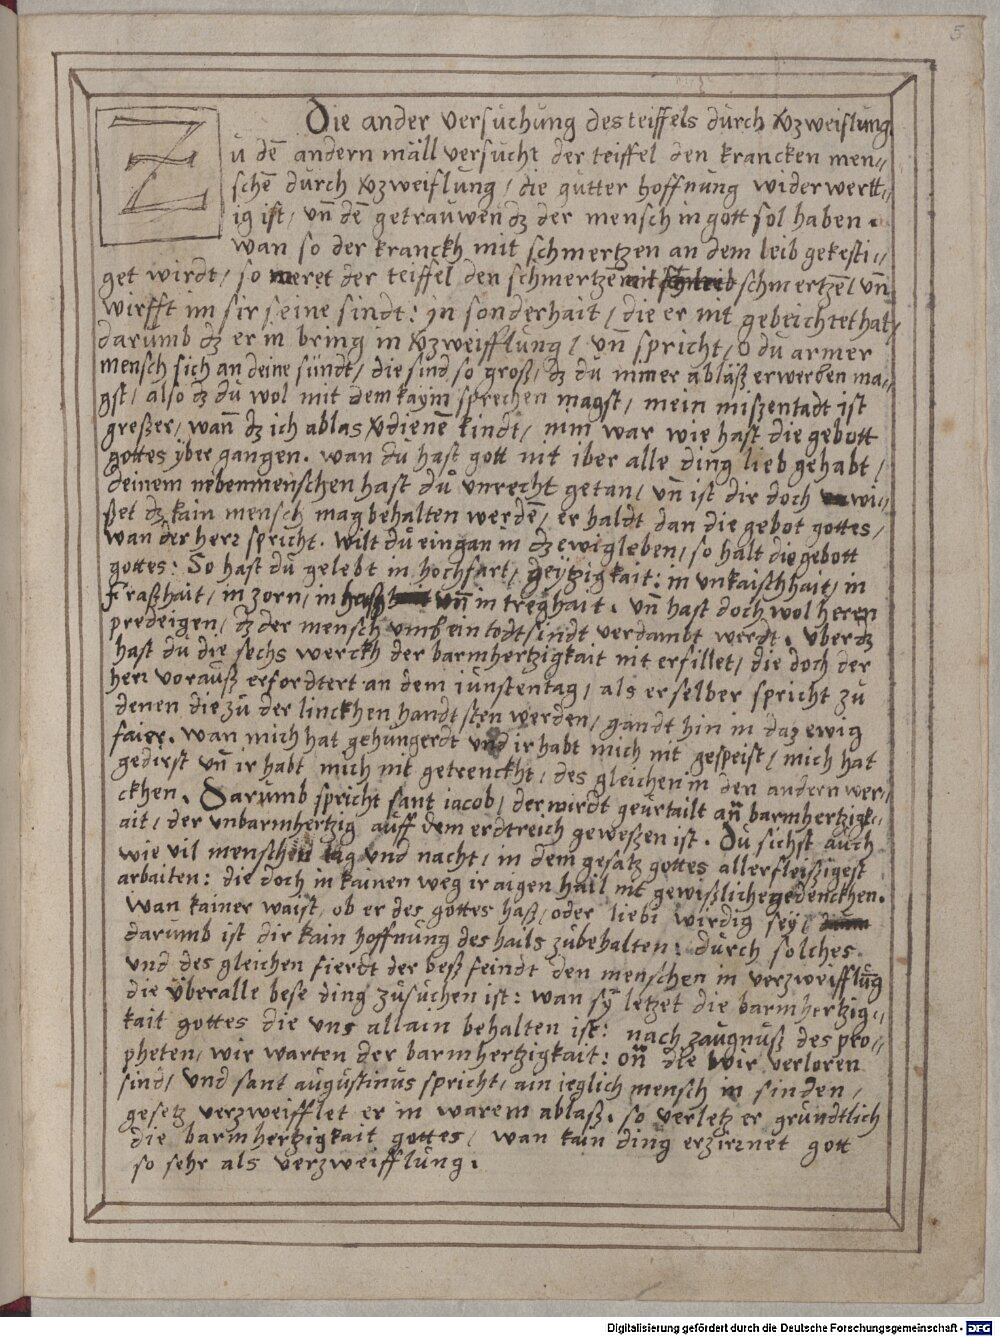 5
Die ander versuchung des teiffels durch v̄zweiflung
Z
ů dē andern mäll versucht der teiffel den krancken men=
schē durch v̄zweiflung / die gutter hoffnung widerwertt=
ig ist / vn̄ dē getrauwen dz der mensch in gott sol haben.
wan so der kranckh mit schmertzen an dem leib gekesti=
get wirdt / so meret der teiffel den schmertzē mit schmertzē / vn̄
wirfft im fir seine sindt: in sonderhait / die er nit gebeichtet hat /
darumb dz er in bring in v̄zweifflung / vn̄ spricht / O du armer
mensch sich an deine sündt / die sind so groß / dz du nimer abläß erwerben ma=
gst / also dz du wol mit dem kaÿm sprechen magst / mein miszentadt ist
greßer / wan̄ dz ich ablas v̄dienē kindt / nim war wie hast die gebott
gottes ÿber gangen. wan du hast gott nit iber alle ding lieb gehabt /
deinem nebenmenschen hast dů vnrecht getan / vn̄ ist dir doch wi=
ßet dz kain mensch mag behalten werdē / er haldt dan die gebot gottes /
wan der herr spricht. wilt dů eingan in dz ewig leben / so halt die gebott
gottes: So hast dů gelebt in hochfart / geÿtzigkait: in vnkaischhait / in
fraßhait / in zorn / in haß vn̄ in treghait. vn̄ hast doch wol heren
predeigen / dz der mensch umb ein todt sindt verdambt werdt. vber dz
hast du die sechs werckh der barmhertzigkait nit erfillet / die doch der
herr vorauß erfordtert an dem iunstentag / als er selber spricht zů
denen die zů der linckhen handt sten werden / gandt hin in daz ewig
faier. wan mich hat gehungerdt vnd ir habt mich nit gespeist / mich hat
gedirst vn̄ ir habt mich nit getrenckht / des gleichen in den andern wer=
ckhen. Darumb spricht sant iacob / der wirdt geurtailt an̄ barmhertzigk=
ait / der vnbarmhertzig auff dem erdtreich geweßen ist. Du sichst auch
wie vil menschen tag vnd nacht / in dem gesatz gottes allerfleißigest
arbaiten: die doch in kainen weg ir aigen hail nit gewißliche gedenckhen.
wan kainer waist / ob er des gottes haß / oder liebi wirdig seÿ /
darumb ist dir kain hoffnung des hails zůbehalten: durch solches
vnd des gleichen fierdt der beß feindt den menschen in verzweifflūg
die überalle bese ding zůsůchen ist: wan sÿ letzet die barmhertzig=
kait gottes die vns allain behalten ist: nach zaugnuß des pro=
pheten / wir warten der barmhertzigkait: on̄ die wir verloren
sind / vnd sant augustinus spricht / ain ieglich mensch in sinden /
gesetz verzweifflet er in warem ablaß. so verletz er grundtlich
die barmhertzigkait gottes / wan kain ding erzirnet gott
so sehr als verzweifflung.
Digitalisierung gefördert durch die Deutsche Forschungsgemeinschaft - DFG